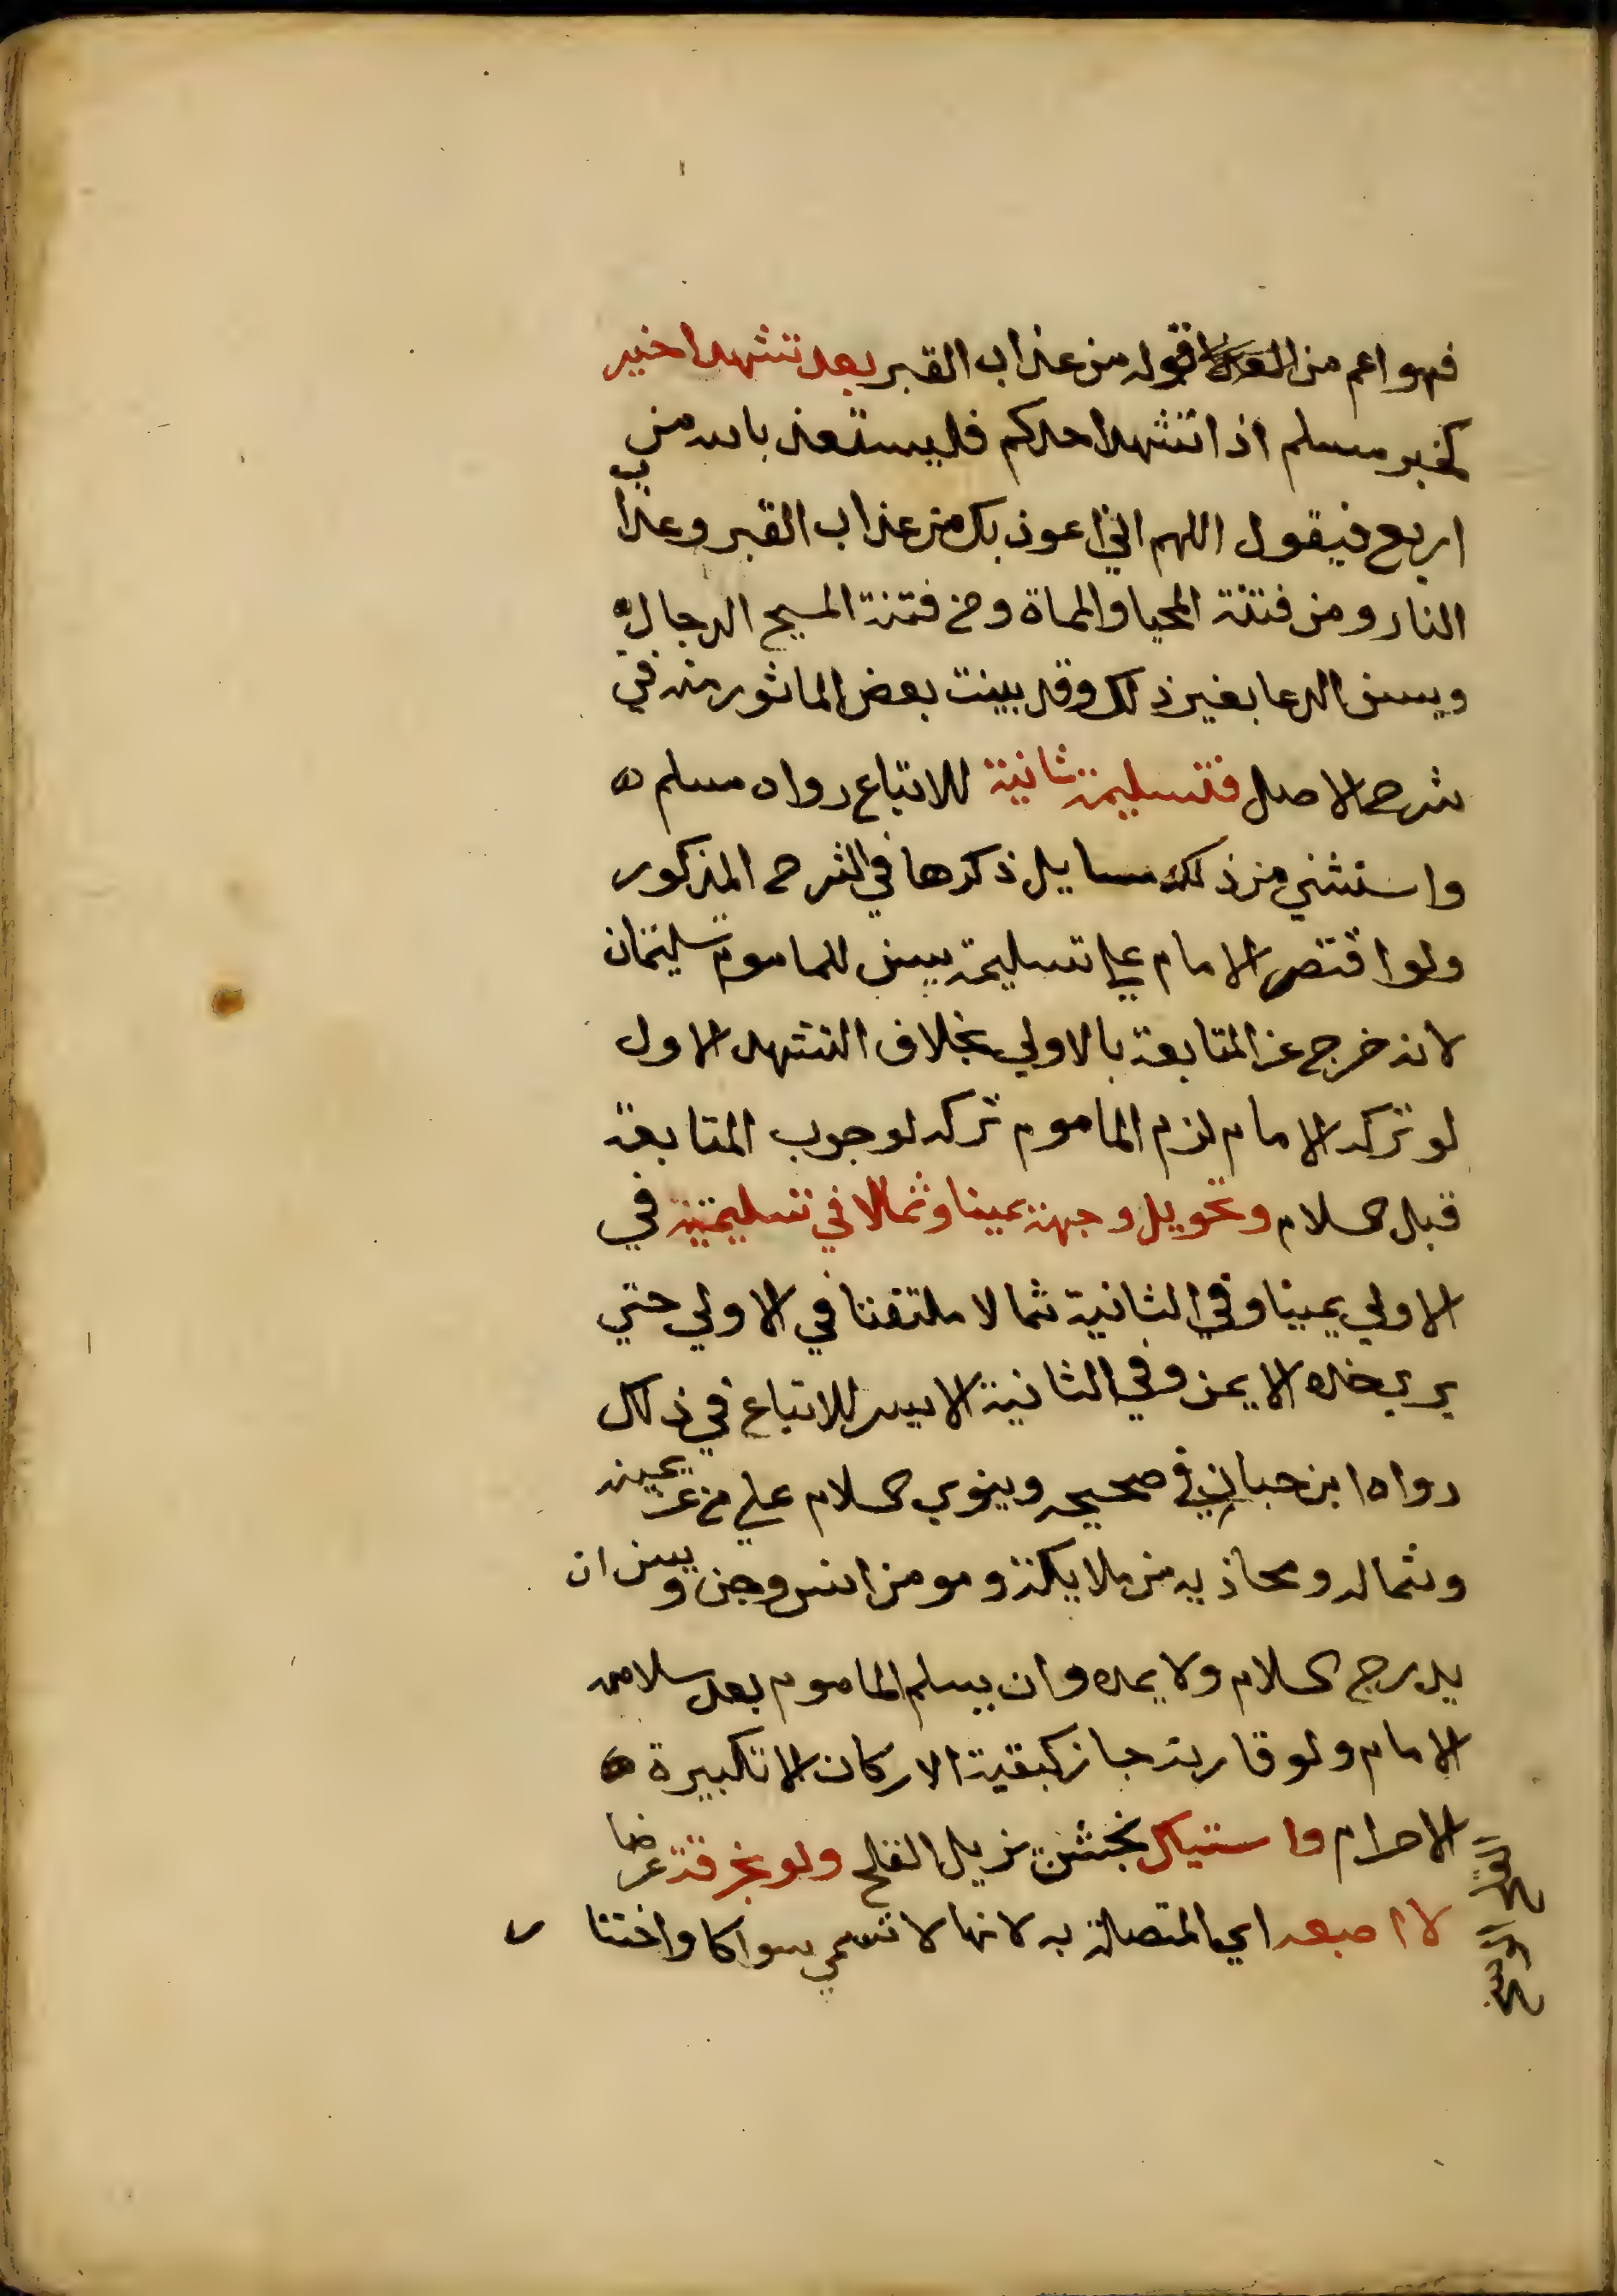 فهو اعم من قوله من عذاب القبر بعد تشهد اخير
كخبر مسلم اذا تشهد احدكم فليستعذ بالله من
اربع فيقول اللهم اني اعوذ بك من عذاب القبر وعذاب
النار ومن فتنة المحيا والمماة ومن فتنة المسيح الدجال
ويسن الدعا بغير ذلك وقد بينت بعض الماثور منه في
شرح الاصل فتسليمة ثانية للاتباع رواه مسلم
واستثني من ذلك مسايل ذكرها في الشرح المذكور
ولو اقتصر الامام علي تسليمة يسن للماموم تسليمتان
لانه خرج عن المتابعة بالاولي بخلاف التشهد الاول
لو تركه الامام لزم الماموم تركه لوجوب المتابعة
قبل السلام وتحويل وجهه يمينا وشمالا في تسليمتيه في
الاولي يمينا وفي الثانية شمالا ملتفتا في الاولي حتي
يري خده الايمن وفي الثانية الايسر للاتباع في ذلك
رواه ابن حبان في صحيحه وينوي السلام علي من عن يمينه
وشماله ومحاذيه من ملايكة ومومن انس وجن ويسن ان
يدرج السلام ولا يمده وان يسلم الماموم بعد سلام
الامام ولو قارنه جاز كبقية الاركان الا تكبيرة
الاحرام واستياك بخشن يزيل القلح ولو بخرقة عرضا
لا اصبعه اي المتصلة به لانها لا تسمي سواكا واختتا
القلح الوسخ